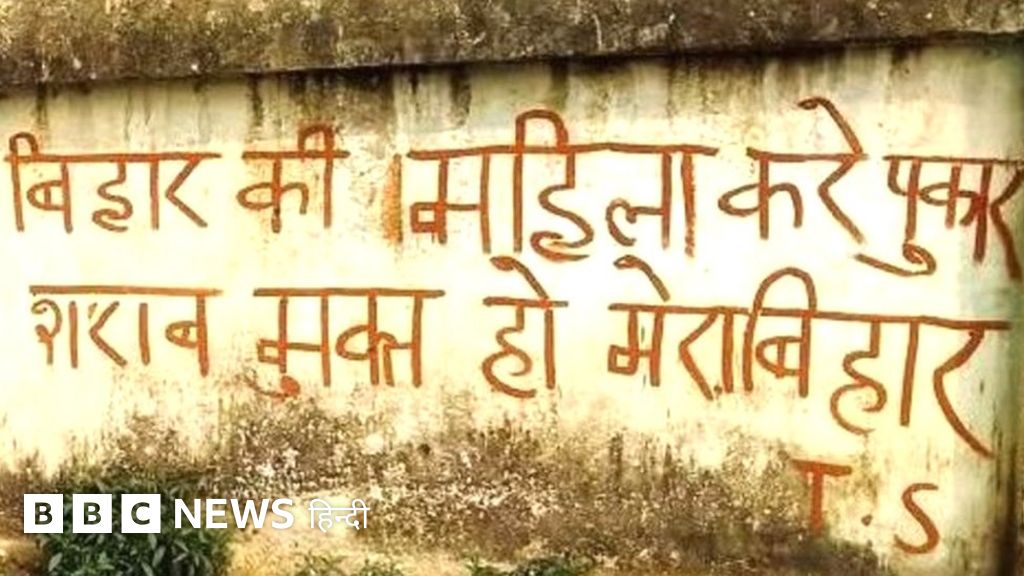 बिहार की महिला करे पुकार
शराब मुक्त हो मेरा बिहार
T.S
BBC NEWS हिन्दी